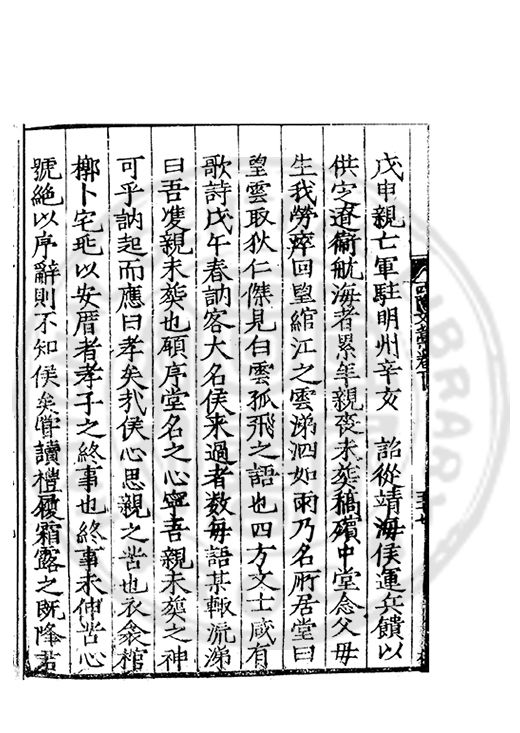 戊申親亡軍駐明州辛亥　詔從靖海侯運兵饋以
供定遼衞航海者累年親喪未葬稿殯中堂念父母
生我勞瘁回望綰江之雲涕泗如雨乃名所居堂曰
望雲取狄仁傑見白雲孤飛之語也四方文士咸有
歌詩戊午春訥客大名侯來過者數每語某輒流涕
曰吾雙親未葬也願序堂名之心寧吾親未葬之神
可乎訥起而應曰孝矣我侯心思親之苦也衣衾棺
槨卜宅兆以安厝者孝子之終事也終事未伸苦心
號絶以序辭則不知侯矣甞讀禮履霜露之既降君